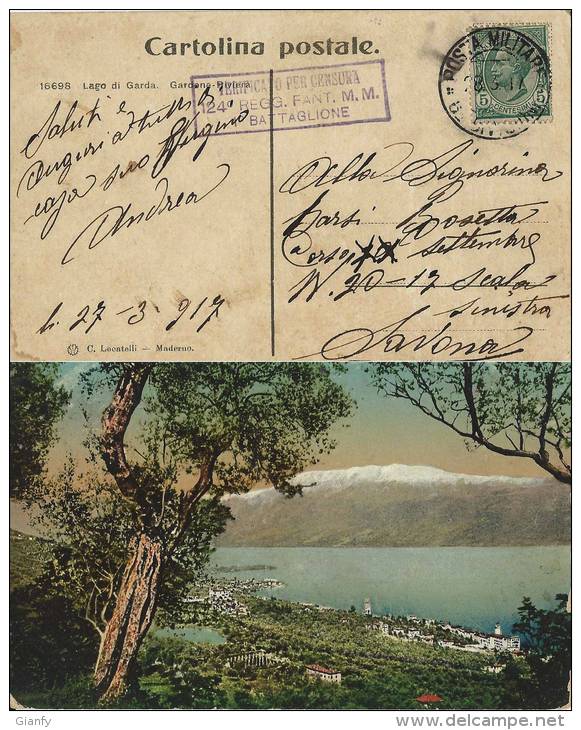 Cartolina postale.
16698 Lago di Garda. Gardone-Riviera
VERIFICATO PER CENSURA
124° REGG. FANT. M. M.
BATTAGLIONE
POSTA MILITARE
28 3 17
5 CENTESIMI 5
Saluti e
auguri a tutti di
casa suo
Andrea
li 27-3-917
Alla Signorina
Rosetta
Corso XX settembre
N. 20-17 Scala
sinistra
Savona
C. Locatelli — Maderno.
Gianfy